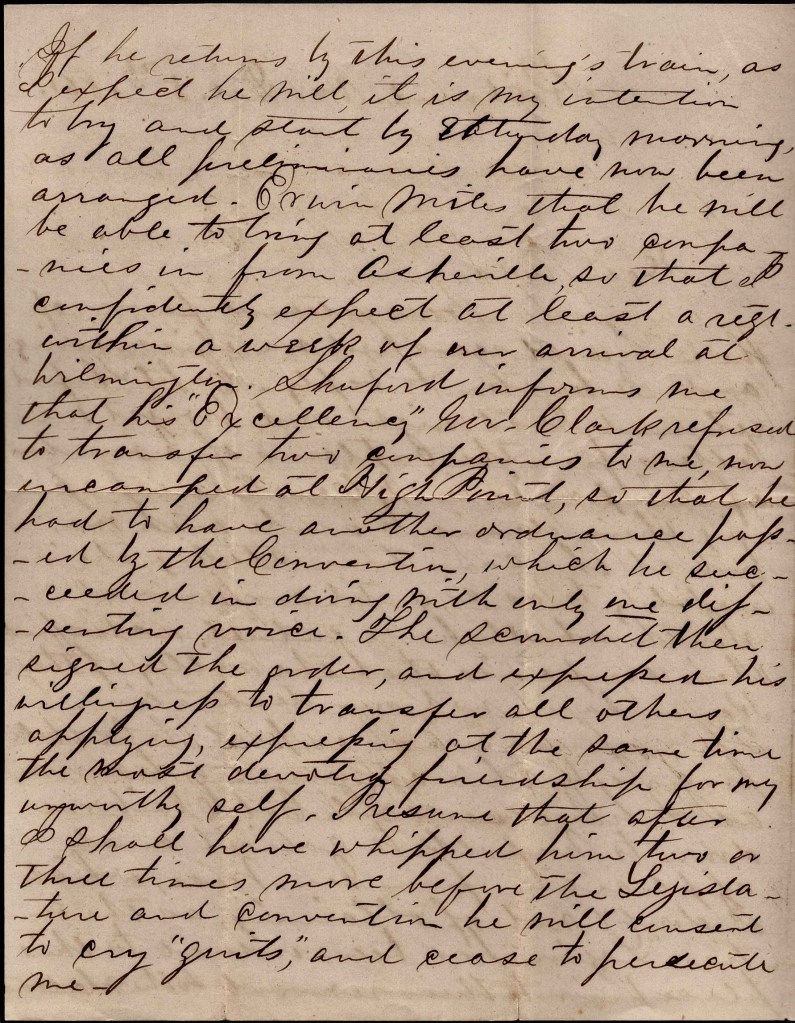 If he returns by this evening's train, as
I expect he will, it is my intention
to try and start by Saturday morning,
as all preliminaries have now been
arranged. Erwin writes that he will
be able to bring at least two compa-
-nies in from Asheville, so that I
confidently expect at least a regt.
within a week of our arrival at
Wilmington. Shuford informs me
that his "Excellency," Gov. Clark refused
to transfer two companies to me, now
encamped at High Point, so that he
had to have another ordnance pass-
-ed by the Convention, which he suc-
-ceeded in doing with only one dis-
-senting voice. The scoundrel then
signed the order, and expressed his
willingness to transfer all others
applying, expressing at the same time
the most devoted friendship for my
unworthy self. Presume that after
I shall have whipped him two or
three times more before the Legisla-
-ture and convention he will consent
to cry "quits," and cease to persecute
me-